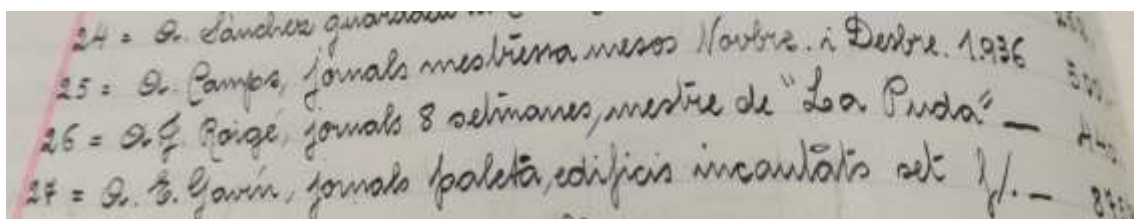 24 = A. Sánchez guardada
25 = A. Camps, jornals mestressa mesos Novbre. i Desbre. 1.936 500
26 = A. J. Roigé, jornals 8 setmanes, mestre de "La Puda" —
27 = A. E. Gavín, jornals paleta, edificis incautats set f/. —